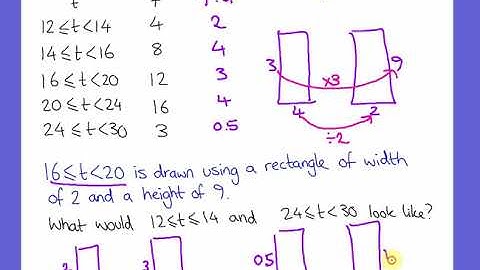 t
12≤t<14 4 2
14≤t<16 8 4
16≤t<20 12 3
20≤t<24 16 4
24≤t<30 3 0.5
3 9
×3
4 2
÷2
16≤t<20 is drawn using a rectangle of width
of 2 and a height of 9.
What would 12≤t≤14 and 24≤t<30 look like?
2 3 0.5 6